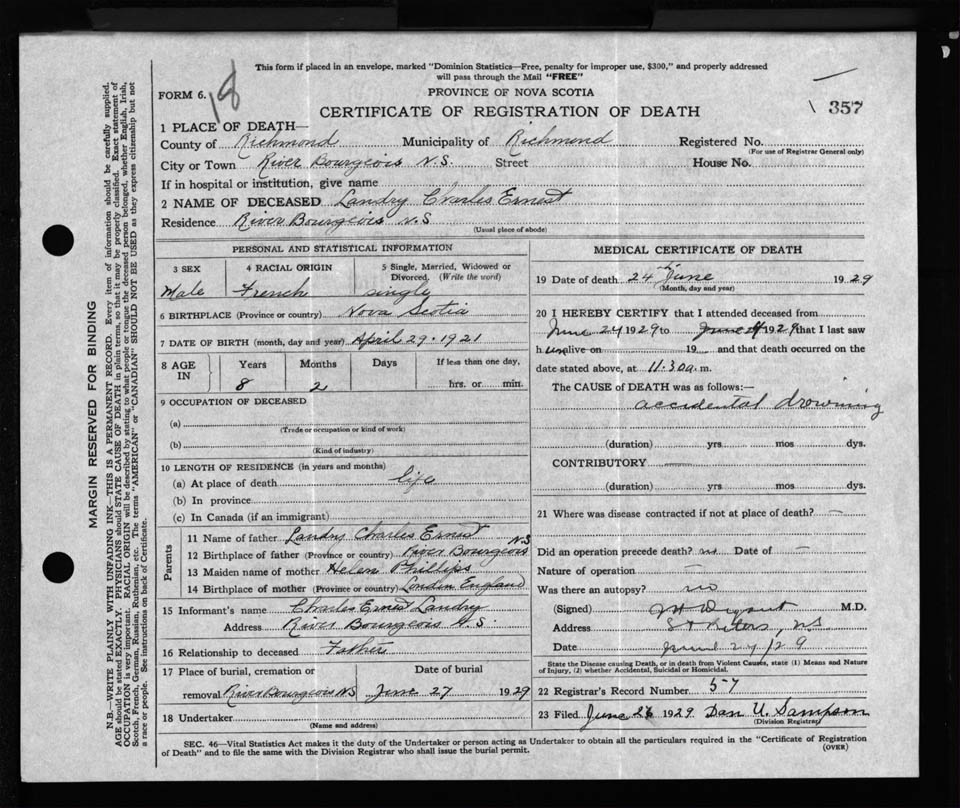 This form if placed in an envelope, marked "Dominion Statistics—Free, penalty for improper use, $300," and properly addressed
will pass through the Mail "FREE"
FORM 6. 18
PROVINCE OF NOVA SCOTIA
CERTIFICATE OF REGISTRATION OF DEATH
357
1 PLACE OF DEATH—
County of Richmond Municipality of Richmond Registered No.
(For use of Registrar General only)
City or Town River Bourgeois N.S. Street House No.
If in hospital or institution, give name
2 NAME OF DECEASED Landry Charles Ernest
Residence River Bourgeois N.S
(Usual place of abode)
PERSONAL AND STATISTICAL INFORMATION
3 SEX 4 RACIAL ORIGIN 5 Single, Married, Widowed or
Divorced. (Write the word)
Male French single
6 BIRTHPLACE (Province or country) Nova Scotia
7 DATE OF BIRTH (month, day and year) April 29 · 1921
8 AGE IN Years Months Days If less than one day,
8 2 hrs. or min.
9 OCCUPATION OF DECEASED
(a)
(Trade or occupation or kind of work)
(b)
(Kind of industry)
10 LENGTH OF RESIDENCE (in years and months)
(a) At place of death life
(b) In province
(c) In Canada (if an immigrant)
Parents
11 Name of father Landry Charles Ernest
12 Birthplace of father (Province or country) River Bourgeois N.S
13 Maiden name of mother Helen Phillips
14 Birthplace of mother (Province or country) London England
15 Informant's name Charles Ernest Landry
Address River Bourgeois N.S.
16 Relationship to deceased Father
17 Place of burial, cremation or Date of burial
removal River Bourgeois NS June 27 1929
18 Undertaker
(Name and address)
MEDICAL CERTIFICATE OF DEATH
19 Date of death 24th June 1929
(Month, day and year)
20 I HEREBY CERTIFY that I attended deceased from
June 24 1929 to June 1929 that I last saw
h alive on 19 and that death occurred on the
date stated above, at 11.30 a. m.
The CAUSE OF DEATH was as follows:—
accidental drowning
(duration) yrs mos dys.
CONTRIBUTORY —
(duration) yrs. mos dys.
21 Where was disease contracted if not at place of death? —
Did an operation precede death? no Date of —
Nature of operation —
Was there an autopsy? no
(Signed) M.D.
Address St Peters, N.S
Date June 27/29
State the Disease causing Death, or in death from Violent Causes, state (1) Means and Nature
of Injury, (2) whether Accidental, Suicidal or Homicidal.
22 Registrar's Record Number 57
23 Filed June 26 1929 Dan U. Sampson
(Division Registrar)
SEC. 46—Vital Statistics Act makes it the duty of the Undertaker or person acting as Undertaker to obtain all the particulars required in the "Certificate of Registration
of Death" and to file the same with the Division Registrar who shall issue the burial permit.
(OVER)
MARGIN RESERVED FOR BINDING
N.B.—WRITE PLAINLY WITH UNFADING INK—THIS IS A PERMANENT RECORD. Every item of information should be carefully supplied.
AGE should be stated EXACTLY. PHYSICIANS should STATE CAUSE OF DEATH in plain terms, so that it may be properly classified. Exact statement of
OCCUPATION is very important. RACIAL ORIGIN will be described by stating to what people or tongue the deceased person belonged, whether English, Irish,
Scotch, French, German, Russian, Ruthenian, etc. The terms "AMERICAN" or "CANADIAN" SHOULD NOT BE USED as they express citizenship but not
a race or people. See instructions on back of Certificate.